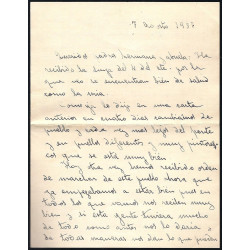 7 Agosto 1937
Queridos padres hermanos y abuela: He
recibido la suya del 4 del cte. por la
que veo se encuentran bien de salud
como la mia
como ya le dije en una carta
anterior en cuatro dias cambiamos de
pueblo y cada vez mas lejos del frente
y en pueblos diferentes y muy pintores
cos que se está muy bien
Hoy otra vez hemos recibido orden
de marchar de este pueblo ahora que
ya empezabamos a estar bien pues en
todos los que vamos nos reciben muy
bien y si esta gente tuviera mucho
de todo como antes nos lo daria,
de todas maneras nos dan lo que pueden